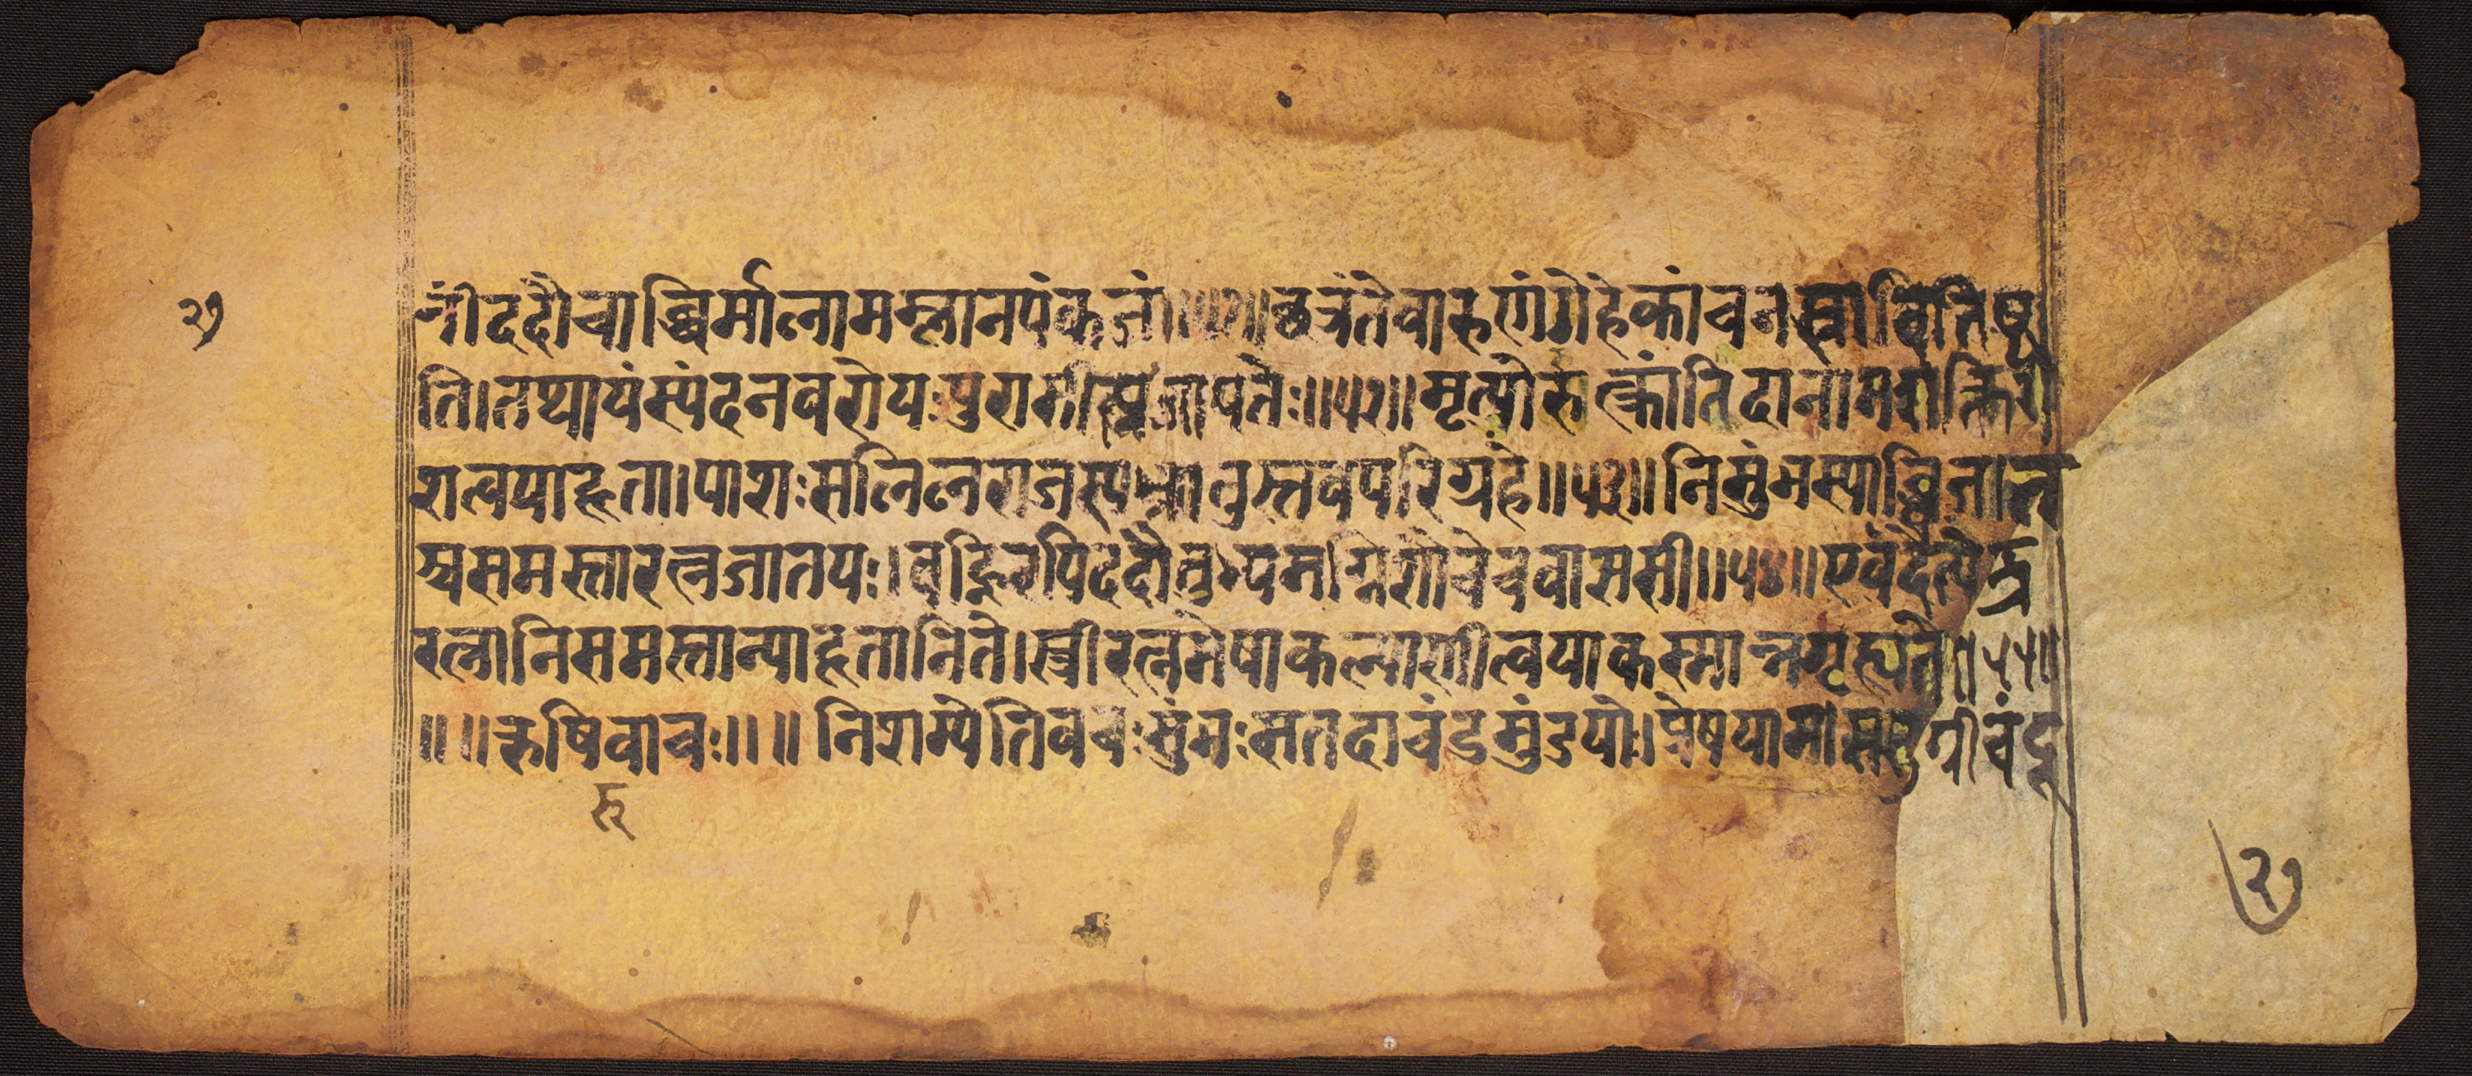 २७
नीं ददौ चाब्धिर्मालामम्लानपंकजां॥५१॥छत्रं ते वारुणं गेहे कांचनस्रावि तिष्ठ
ति।तथायं स्यंदनवरो यः पुरासीत्प्रजापतेः॥५२॥मृत्योरुत्क्रांतिदा नाम शक्तिरी
श त्वया हृता।पाशः सलिलराजस्य भ्रातुस्तव परिग्रहे॥५३॥निसुंभस्याब्धिजात
श्च समस्ता रत्नजातयः।वह्निरपि ददौ तुभ्यमग्निशौचे च वाससी॥५४॥एवं दैत्येंद्र
रत्नानि समस्तान्याहृतानि ते।स्त्रीरत्नमेषा कल्याणी त्वया कस्मान्न गृह्यते॥५५॥
॥ ॥ऋषिवाचः॥ ॥ निशम्येति वचः सुंभः स तदा चंडमुंडयोः।प्रेषयामास सुग्रीवं दू
रु
२७